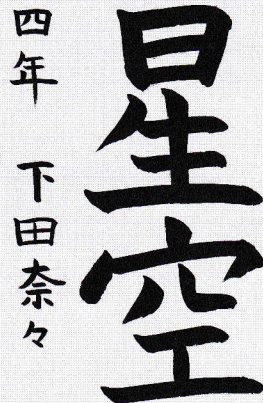 星空
四年 下田奈々